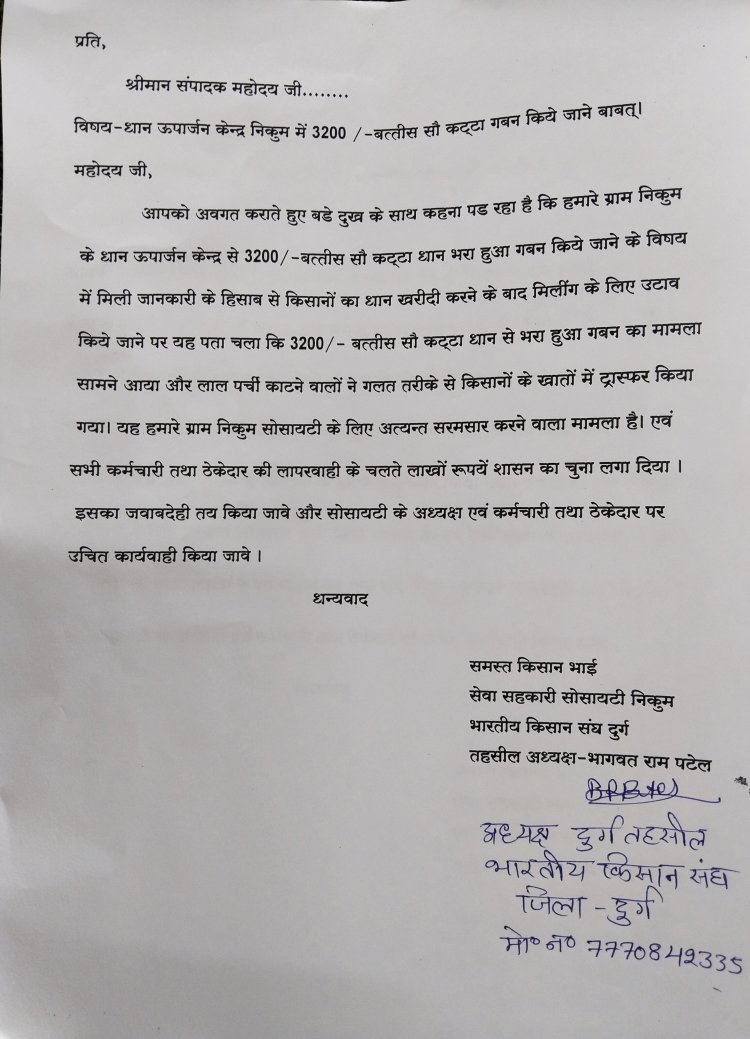 प्रति,
श्रीमान संपादक महोदय जी........
विषय-धान ऊपार्जन केन्द्र निकुम में 3200 /-बत्तीस सौ कट्टा गबन किये जाने बाबत्।
महोदय जी,
आपको अवगत कराते हुए बडे दुख के साथ कहना पड रहा है कि हमारे ग्राम निकुम
के धान ऊपार्जन केन्द्र से 3200/-बत्तीस सौ कट्टा धान भरा हुआ गबन किये जाने के विषय
में मिली जानकारी के हिसाब से किसानों का धान खरीदी करने के बाद मिलींग के लिए उटाव
किये जाने पर यह पता चला कि 3200/- बत्तीस सौ कट्टा धान से भरा हुआ गबन का मामला
सामने आया और लाल पर्ची काटने वालों ने गलत तरीके से किसानों के खातों में ट्रास्फर किया
गया। यह हमारे ग्राम निकुम सोसायटी के लिए अत्यन्त सरमसार करने वाला मामला है। एवं
सभी कर्मचारी तथा ठेकेदार की लापरवाही के चलते लाखों रूपयें शासन का चुना लगा दिया ।
इसका जवाबदेही तय किया जावे और सोसायटी के अध्यक्ष एवं कर्मचारी तथा ठेकेदार पर
उचित कार्यवाही किया जावे ।
धन्यवाद
समस्त किसान भाई
सेवा सहकारी सोसायटी निकुम
भारतीय किसान संघ दुर्ग
तहसील अध्यक्ष-भागवत राम पटेल
अध्यक्ष दुर्ग तहसील
भारतीय किसान संघ
जिला - दुर्ग
मो० न० 7770842335